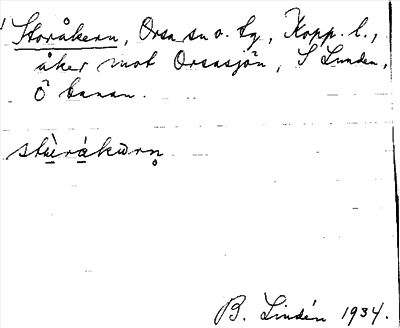 Storåkern, Orsa sn o. tg, Kopp. l.,
åker mot Orsasjön, S Lunden,
Ö banan.
stùrákʉrn̥
B. Lindén 1934.